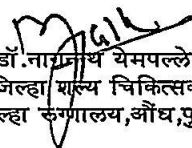 डॉ.नागनाथ येमपल्ले
जिल्हा शल्य चिकित्सक
ल्हा रुग्णालय,औंध,पु